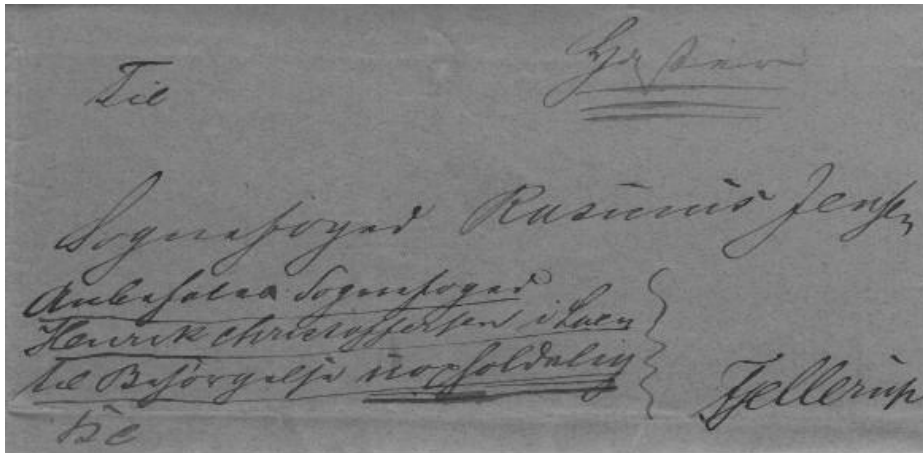 Til
Haster
Sognefoged Rasmus Jensen
Anbefales Sognefoged
Henrik Christoffersen i Lúen
til Besørgelse uopholdelig
Fjellerup